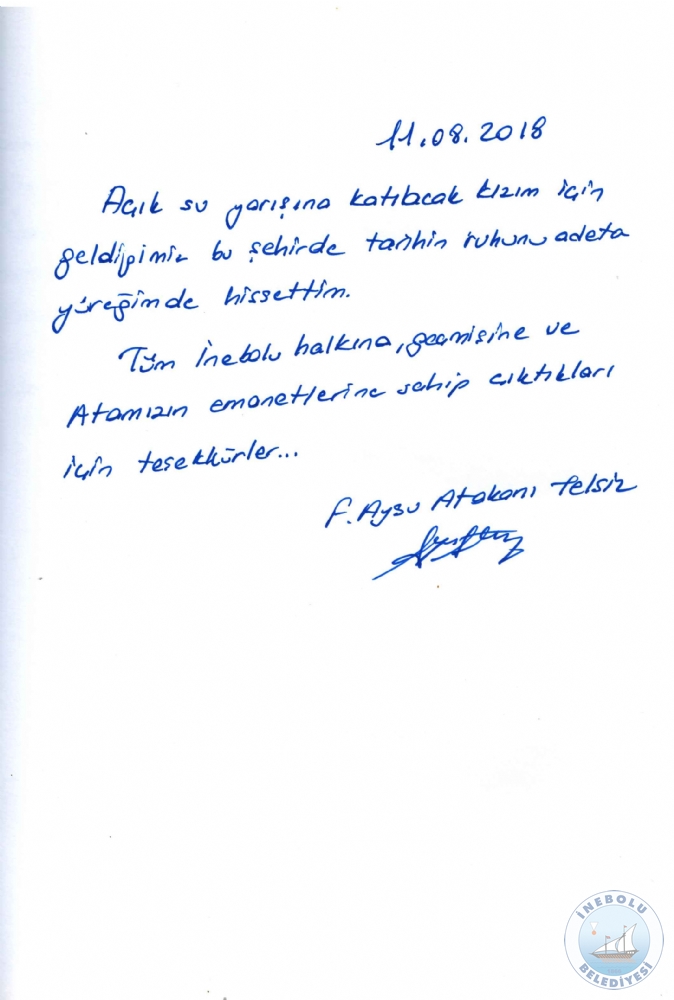 11.08.2018
Açık su yarışına katılacak kızım için
geldiğimiz bu şehirde tarihin ruhunu adeta
yüreğimde hissettim.
Tüm İnebolu halkına, geçmişine ve
Atamızın emanetlerine sahip çıktıkları
için teşekkürler...
F. Aysu Atakanı Telsiz
İNEBOLU
BELEDİYESİ